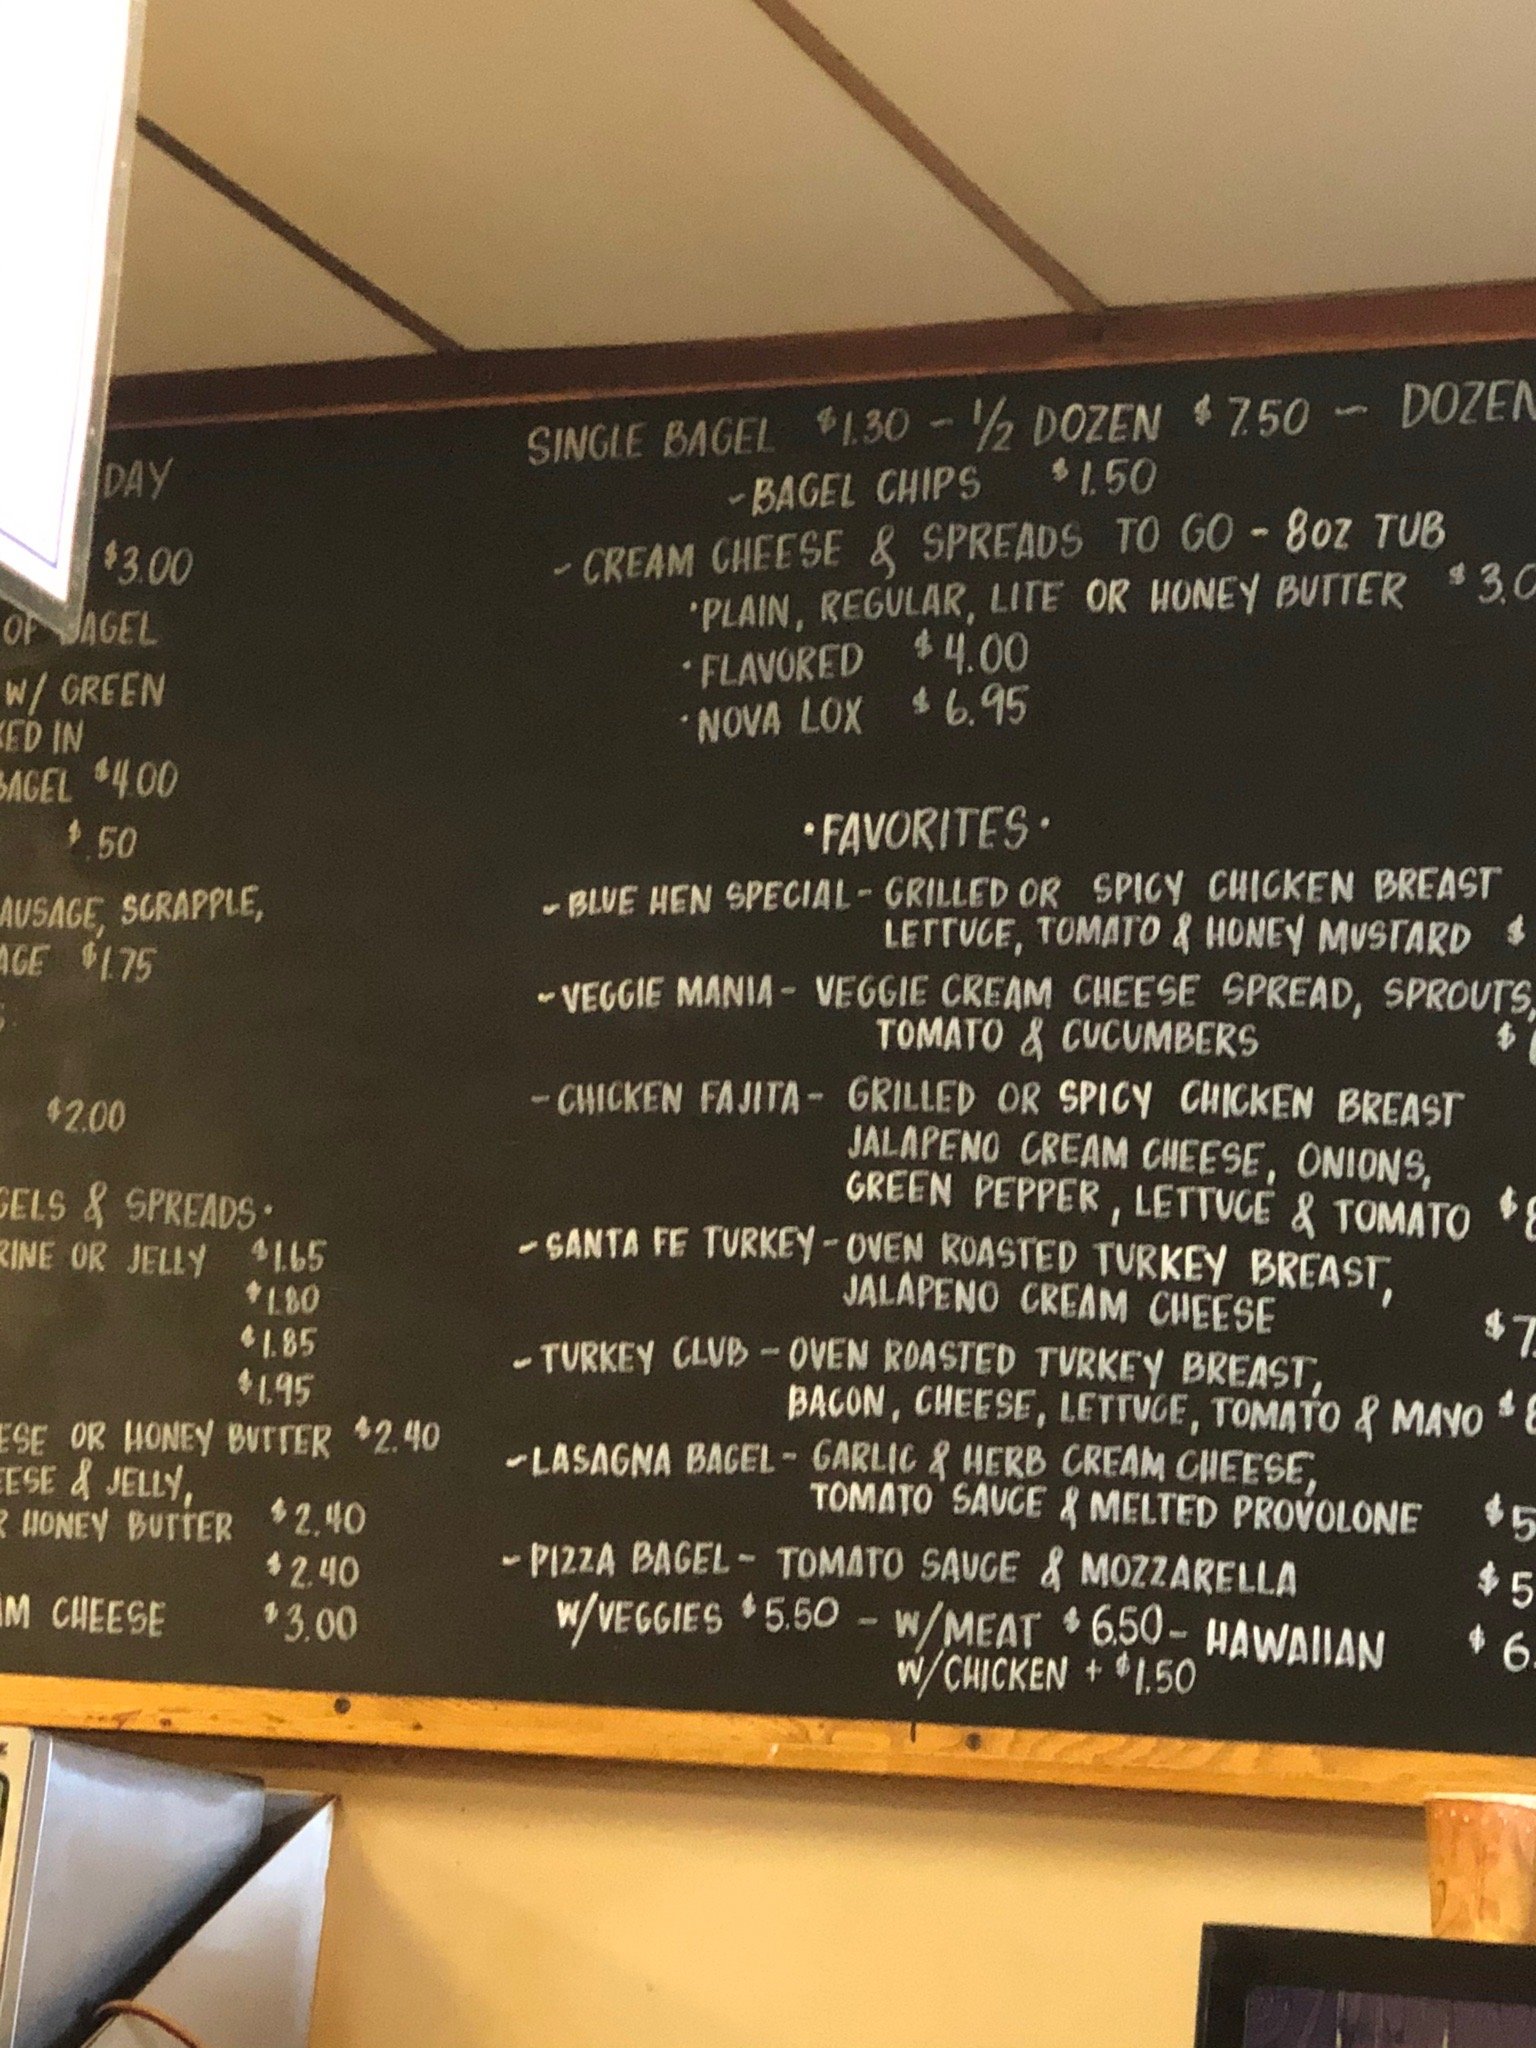 DAY
$3.00
OF BAGEL
W/ GREEN
IN
BAGEL $4.00
$.50
SCRAPPLE,
$1.75
$2.00
& SPREADS·
OR JELLY $1.65
$1.80
$1.85
$1.95
OR HONEY BUTTER $2.40
& JELLY,
HONEY BUTTER $2.40
$2.40
CHEESE $3.00
SINGLE BAGEL $1.30 - 1/2 DOZEN $7.50 - DOZEN
- BAGEL CHIPS $1.50
- CREAM CHEESE & SPREADS TO GO - 8OZ TUB
·PLAIN, REGULAR, LITE OR HONEY BUTTER $3.0
·FLAVORED $4.00
·NOVA LOX $6.95
·FAVORITES·
- BLUE HEN SPECIAL - GRILLED OR SPICY CHICKEN BREAST
LETTUCE, TOMATO & HONEY MUSTARD $
- VEGGIE MANIA - VEGGIE CREAM CHEESE SPREAD, SPROUTS,
TOMATO & CUCUMBERS $
- CHICKEN FAJITA - GRILLED OR SPICY CHICKEN BREAST
JALAPENO CREAM CHEESE, ONIONS,
GREEN PEPPER, LETTUCE & TOMATO $8
- SANTA FE TURKEY - OVEN ROASTED TURKEY BREAST,
JALAPENO CREAM CHEESE $7.
- TURKEY CLUB - OVEN ROASTED TURKEY BREAST,
BACON, CHEESE, LETTUCE, TOMATO & MAYO $8
- LASAGNA BAGEL - GARLIC & HERB CREAM CHEESE,
TOMATO SAUCE & MELTED PROVOLONE $5
- PIZZA BAGEL - TOMATO SAUCE & MOZZARELLA $5
W/VEGGIES $5.50 - W/MEAT $6.50 - HAWAIIAN $6.
W/CHICKEN + $1.50